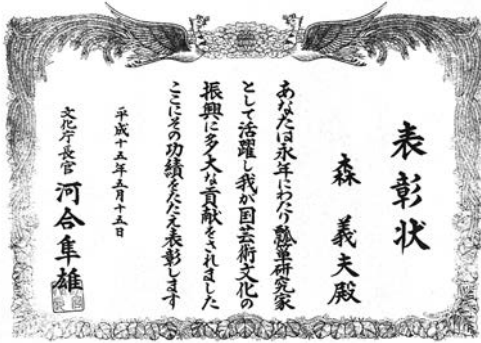 表彰状
森義夫殿
あなたは永年にわたり瓢箪研究家
として活躍し我が国芸術文化の
振興に多大な貢献をされました
ここにその功績をたたえ表彰します
平成十五年五月十五日
文化庁長官 河合隼雄